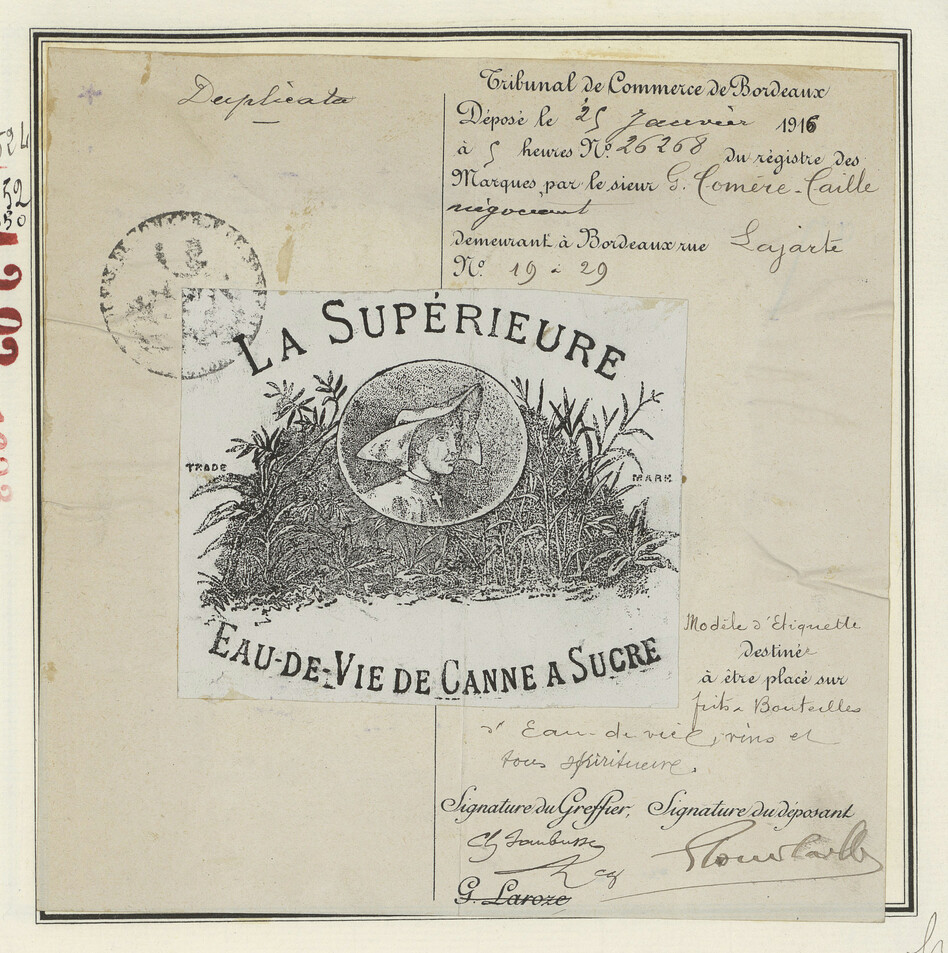 Duplicata
Tribunal de Commerce de Bordeaux
Déposé le 25 Janvier 1916
à 5 heures N° 26268 du régistre des
Marques par le sieur G. Comère-Caille
négociant
demeurant à Bordeaux rue Lajarte
N° 19 à 29
524
52
50
LA SUPÉRIEURE
TRADE MARK
EAU-DE-VIE DE CANNE A SUCRE
Modèle d'Etiquette
destiné
à être placé sur
futs & Bouteilles
d'Eau-de-vie, vins et
tous spiritueux.
Signature du Greffier, Signature du déposant
G. Laroze